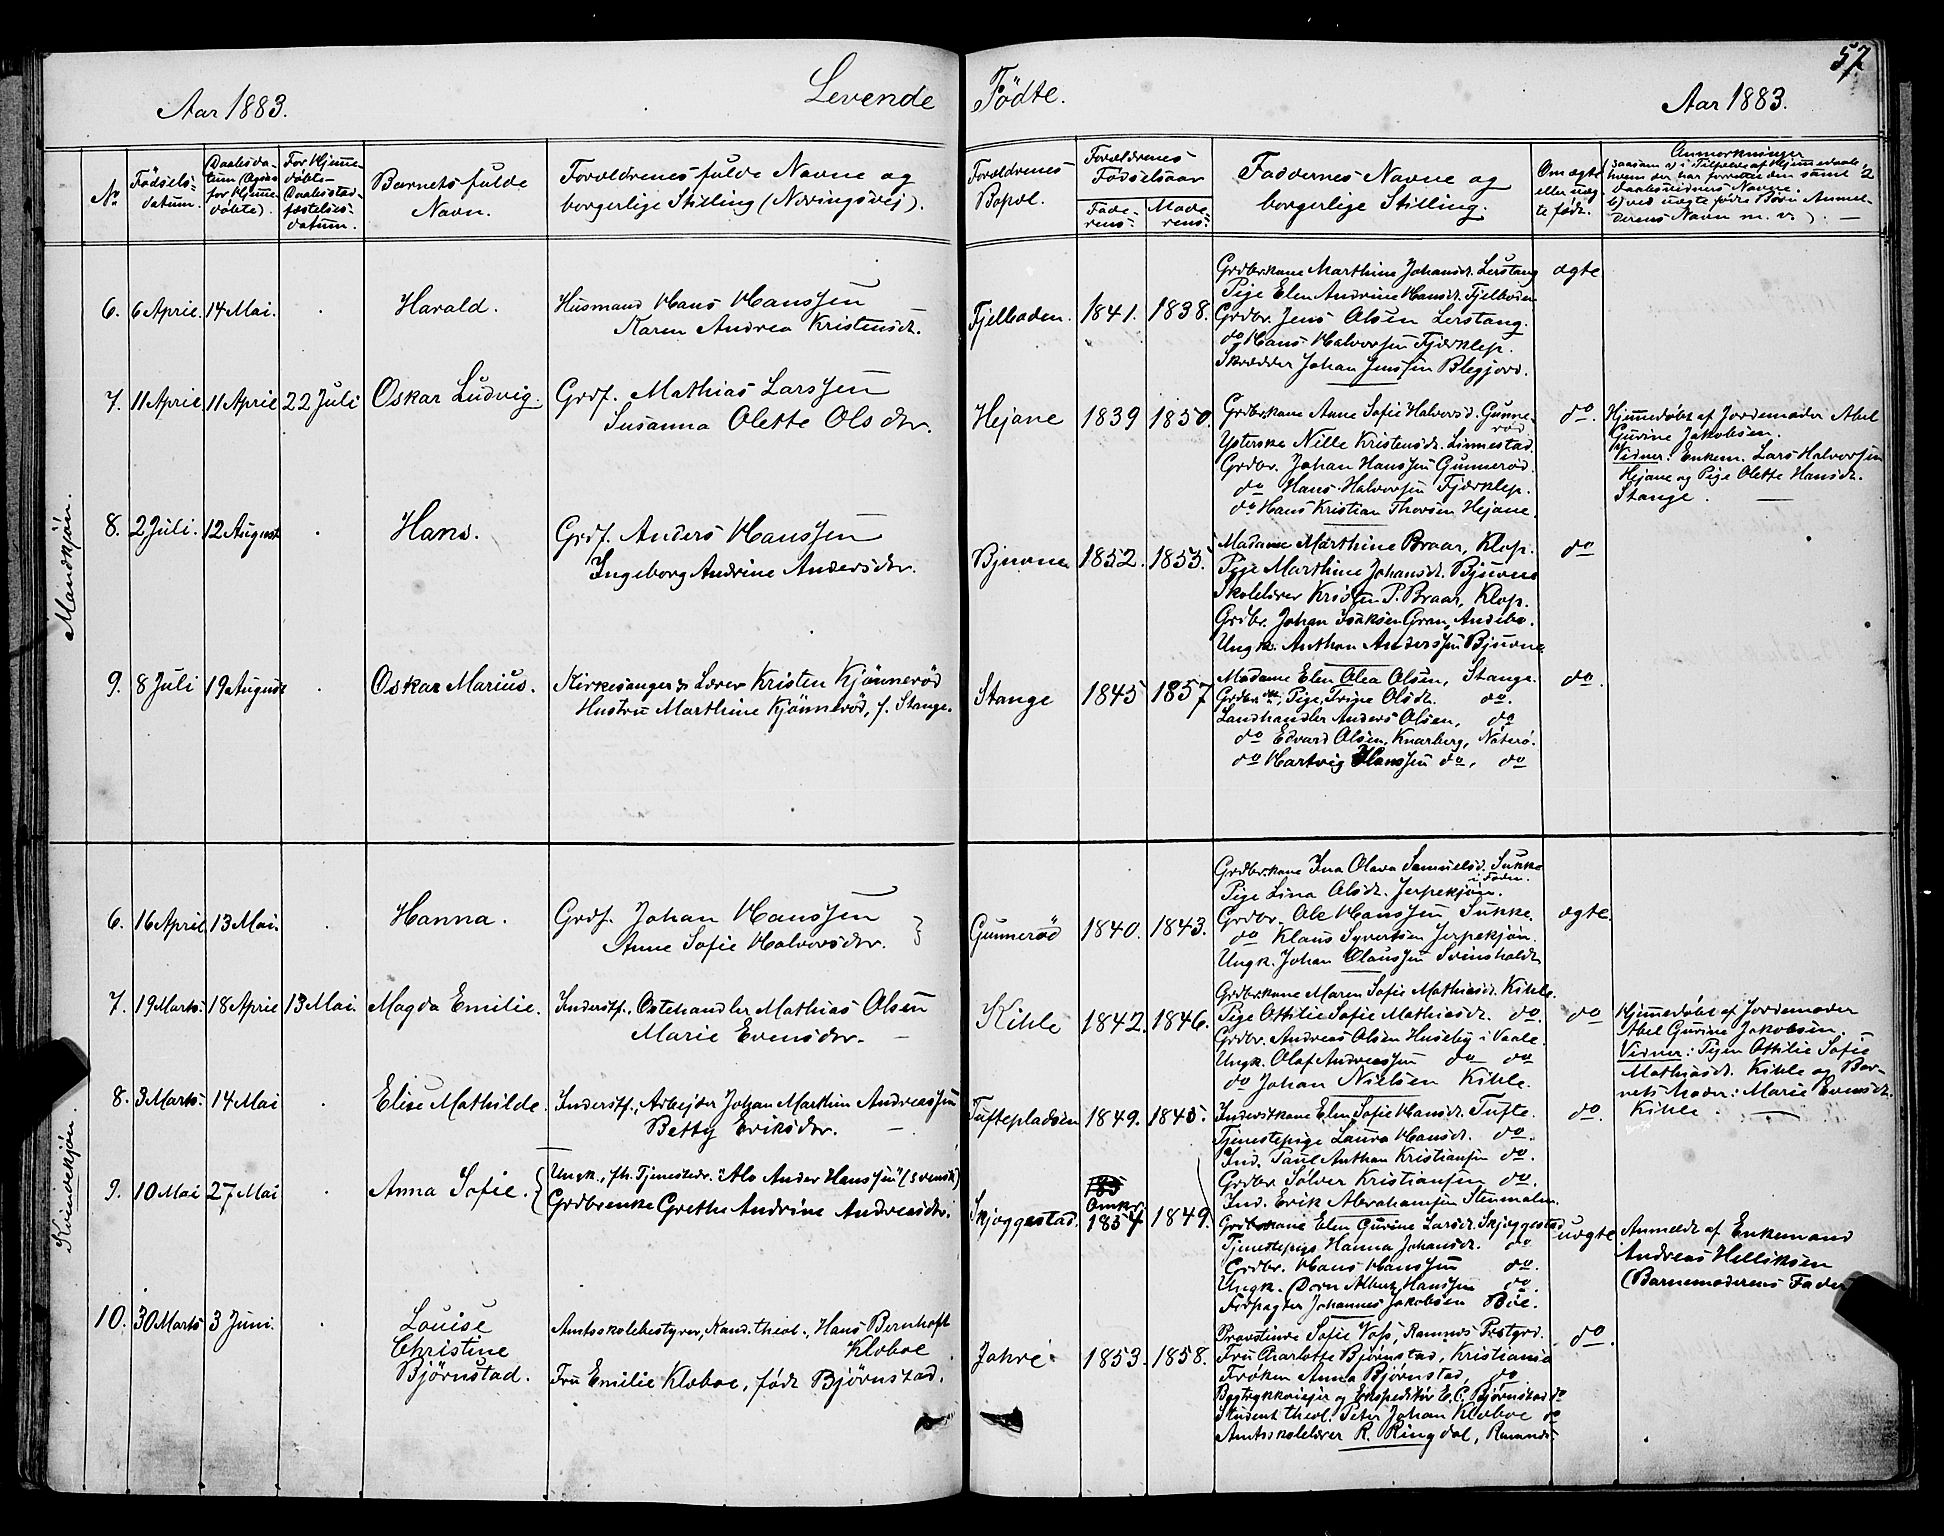 57
Aar 1883.
Levende Fødte.
Aar 1883.
No
Fødsels-
datum.
Daabsda-
tum (Ogsaa
for Hjemme-
døbte).
For Hjemme-
døbte
Daabsstad-
fæstelses-
datum.
Barnets fulde
Navn.
Forældrenes fulde Navne og
borgerlige Stilling (Næringsvej).
Forældrenes
Bopæl.
Forældrenes
Fødselsaar
Fade-
rens.
Mode-
rens.
Faddernes Navne og
borgerlige Stilling.
Om ægte
eller uæg-
te født.
Anmærkninger
Mandkjøn.
6. 6 April. 14 Mai. Harald.
Husmand Hans Hanssen
Karen Andrea Kristensdt.
Fjelboden. 1841. 1838.
Grdbrkone Marthine Johansdt. Lerstang
Pige Elen Andrine Hansdt. Fjelboden
Grdbr. Jens Olsen Lerstang.
do Hans Halvorsen Fjærklep.
Skrædder Johan Jenssen Blegjord.
ægte
7. 11 April. 11 April 22 Juli Oskar Ludvig.
Grdf. Mathias Larssen
Susanna Olette Olsdtr.
Hejane 1839 1850.
Grdbrkone Anne Sofie Halvorsd. Gunne-
rød
Ysterske Nille Kristensdt. Linnestad.
Grdbr. Johan Hanssen Gunnerød.
do Hans Halvorsen Fjærklep.
do Hans Kristian Thorsen Hejane.
do.
Hjemmedøbt af Jordemoder Abel
Gurine Jakobsen.
Vidner: Enkem. Lars Halvorsen
Hejane og Pige Olette Hansdt.
Stange.
8. 2 Juli. 12 August Hans.
Grdf. Anders Hanssen
Ingeborg Andrine Andersdtr.
Bjuvne 1852. 1855.
Madame Marthine Braar, Klop.
Pige Marthine Johansdt. Bjuvne
Skolelærer Kristen P. Braar, Klop.
Grdbr. Johan Isaksen Gran, Andebo.
Ungk. Anthon Anderssen Bjuvne
do
9. 8 Juli 19 August Oskar Marius.
Kirkesanger og Lærer Kristen Kjønnerød
Hustru Marthine Kjønnerød, f. Stange.
Stange 1845 1857
Madame Elen Olea Olsen, Stange.
Pige Trine Olsdt. do.
Landhandler Anders Olsen, do
do Edvard Olsen, Knarberg, Nøterø.
do Hartvig Hanssen do, do
do.
Kvindekjøn.
6. 16 April. 13 Mai. Hanna.
Grdf. Johan Hanssen
Anne Sofie Halvorsdtr.
Gunnerød 1840. 1843.
Grdbrkone Ina Olava Samuelsdt. Sukke
i Foden.
Pige Lina Olsdt. Jerpekjøn.
Grdbr. Ole Hanssen Sukke.
do Klaus Syvertsen Jerpekjøn.
Ungk. Johan Olaussen Svinsholdt
ægte.
7. 19 Marts. 18 April 13 Mai. Magda Emilie.
Inderstf., Ostehandler Mathias Olsen
Marie Evensdtr.
Kihle 1842. 1846.
Grdbrkone Maren Sofie Mathiasdt. Kihle.
Pige Othilie Sofie Mathiasdt. do.
Grdbr. Andreas Olsen Huseby i Vaale.
Ungk. Olaf Andreassen do do
do Johan Nielsen Kihle.
do
Hjemmedøbt af Jordemoder
Abel Gurine Jakobsen.
Vidner: Pigen Othilie Sofie
Mathiasdt. Kihle og Bar-
nets Moder: Marie Evensdt.
Kihle.
8. 3 Marts. 14 Mai Elise Mathilde.
Inderstf., Arbejder Johan Marthin Andreassen
Betty Eriksdtr.
Tuftepladsen 1849. 1845.
Inderstkone Elen Sofie Hansdt. Tufte.
Tjenestepige Laura Hansdt. do.
Ind. Paul Anthon Kristiansen do.
Grdbr. Sølver Kristiansen do.
Ind. Erik Abrahamsen Stenmalm.
do.
9. 10 Mai 27 Mai Anna Sofie.
Ungk., fh. Tjenestedr. "Alo Ander Hanssen" (svensk)
Grdbrenke Grethe Andrine Andreasdtr.
Skjæggestad.
Omkr.
1854 1849.
Grdbrkone Elen Gurine Larsdt. Skjæggestad
Tjenestepige Hanna Johansdt. do
Grdbr. Hans Hanssen do.
Ungk. Albert Hanssen do.
Forpagter Johannes Jakobsen Bøe.
uægte
Anmeldt af Enkemand
Andreas Helliksen
(Barnemoderens Fader
10. 30 Marts 3 Juni.
Louise
Christine
Bjørnstad.
Amtsskolebestyrer, Kand. theol., Hans Bernhoft
Kloboe
Fru Emilie Kloboe, født Bjørnstad.
Jahre 1853. 1858.
Provstinde Sofie Voss, Ramnes Prstgrd.
Fru Charlotte Bjørnstad, Kristiania
Frøken Anna Bjørnstad, do.
Bogtrykkeriejer og Expeditør E. C. Bjørnstad do
Student theol. Peter Johan Kloboe do
Amtsskolelærer R. Ringdal, Ramnes.
do.